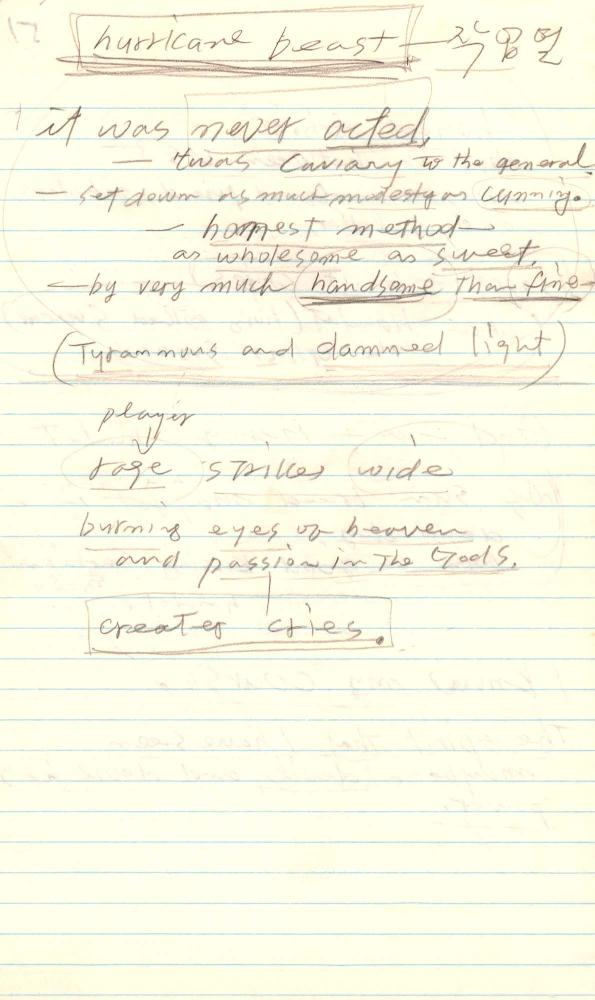 hurricane beast —
it was never acted,
— twas Caviary to the general.
— set down as much modesty as cunning.
— honnest method —
as wholesome as sweet,
— by very much handsome than fine —
(Tyrannous and dammed light)
player
rage strikes wide
burning eyes of heaven
and passion in the Gods.
creater cries.